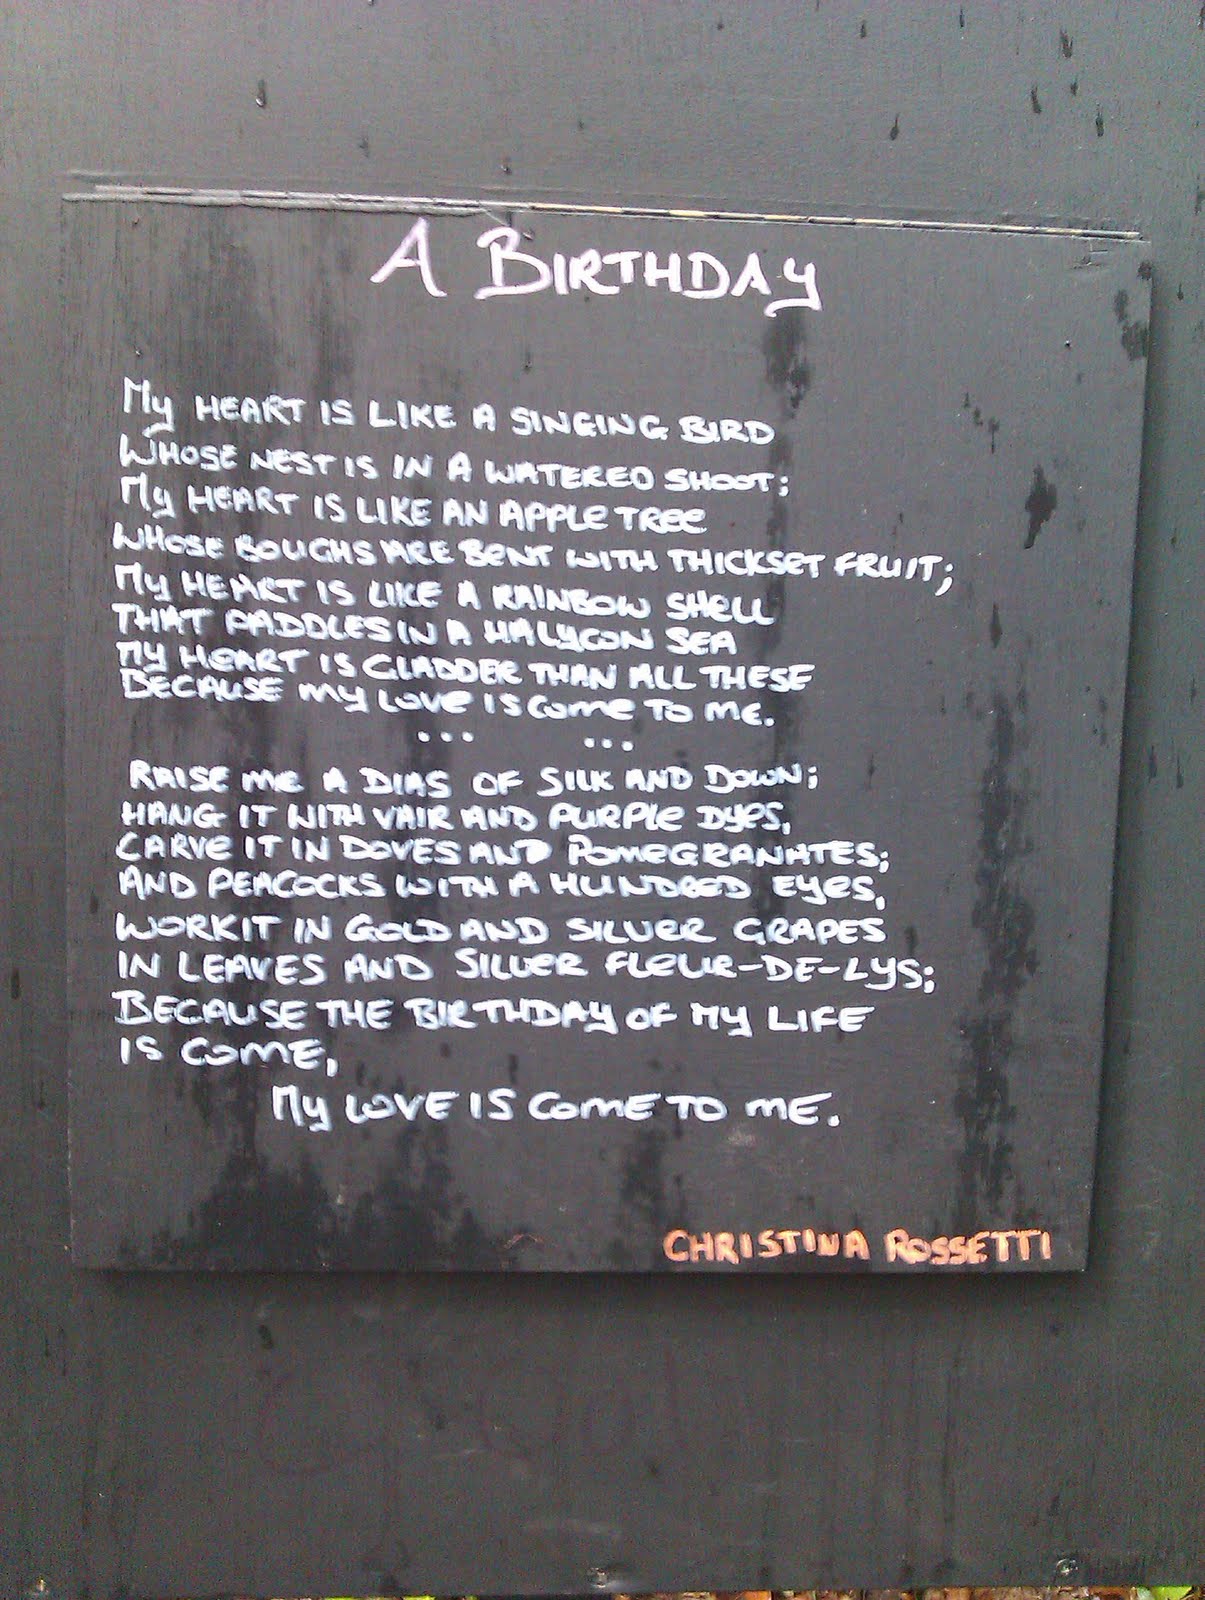 A BIRTHDAY
My HEART IS LIKE A SINGING BIRD
WHOSE NEST IS IN A WATERED SHOOT;
My HEART IS LIKE AN APPLE TREE
WHOSE BOUGHS ARE BENT WITH THICKSET FRUIT;
My HEART IS LIKE A RAINBOW SHELL
THAT PADDLES IN A HALYCON SEA
My HEART IS GLADDER THAN ALL THESE
BECAUSE MY LOVE IS COME TO ME.
... ...
RAISE ME A DIAS OF SILK AND DOWN;
HANG IT WITH VAIR AND PURPLE DYES,
CARVE IT IN DOVES AND POMEGRANATES;
AND PEACOCKS WITH A HUNDRED EYES,
WORK IT IN GOLD AND SILVER GRAPES
IN LEAVES AND SILVER FLEUR-DE-LYS;
BECAUSE THE BIRTHDAY OF MY LIFE
IS COME,
My LOVE IS COME TO ME.
CHRISTINA ROSSETTI